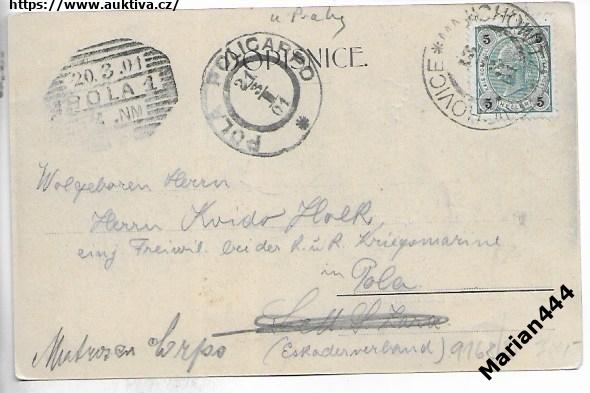 https://www.auktiva.cz/
u Prahy
DOPISNICE.
20.3.01
POLA 1
NM
POLA POLICARPO *
21
01
5 5
5 5
Wolgeboren Herrn
Herrn Kvido Holk
einj Freiwil. bei der K. u K. Kriegsmarine
in Pola
Matrosen Corps
(Eskaderverband)
Marian444